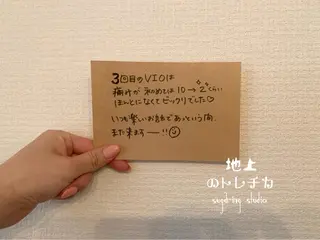 3回目のVIOは
痛みが 初めては10→"2"くらい
ほんとになくてビックリでした♡
いつも楽しいお話であっという間。
また来ますー!!
地上
のトレチカ
sugaring studio